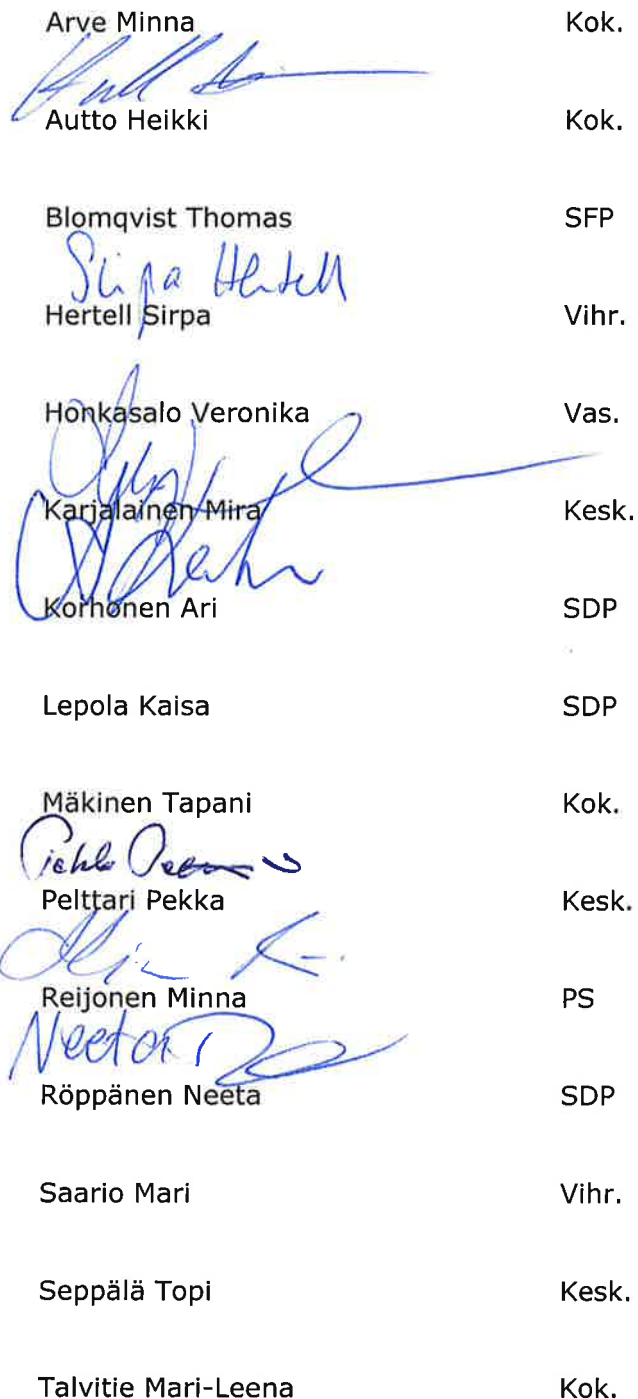 Arve Minna Kok.
Autto Heikki Kok.
Blomqvist Thomas SFP
Sirpa Hertell
Hertell Sirpa Vihr.
Honkasalo Veronika Vas.
Karjalainen Mira Kesk.
Korhonen Ari SDP
Lepola Kaisa SDP
Mäkinen Tapani Kok.
Pelttari Pekka Kesk.
Reijonen Minna PS
Neeta
Röppänen Neeta SDP
Saario Mari Vihr.
Seppälä Topi Kesk.
Talvitie Mari-Leena Kok.